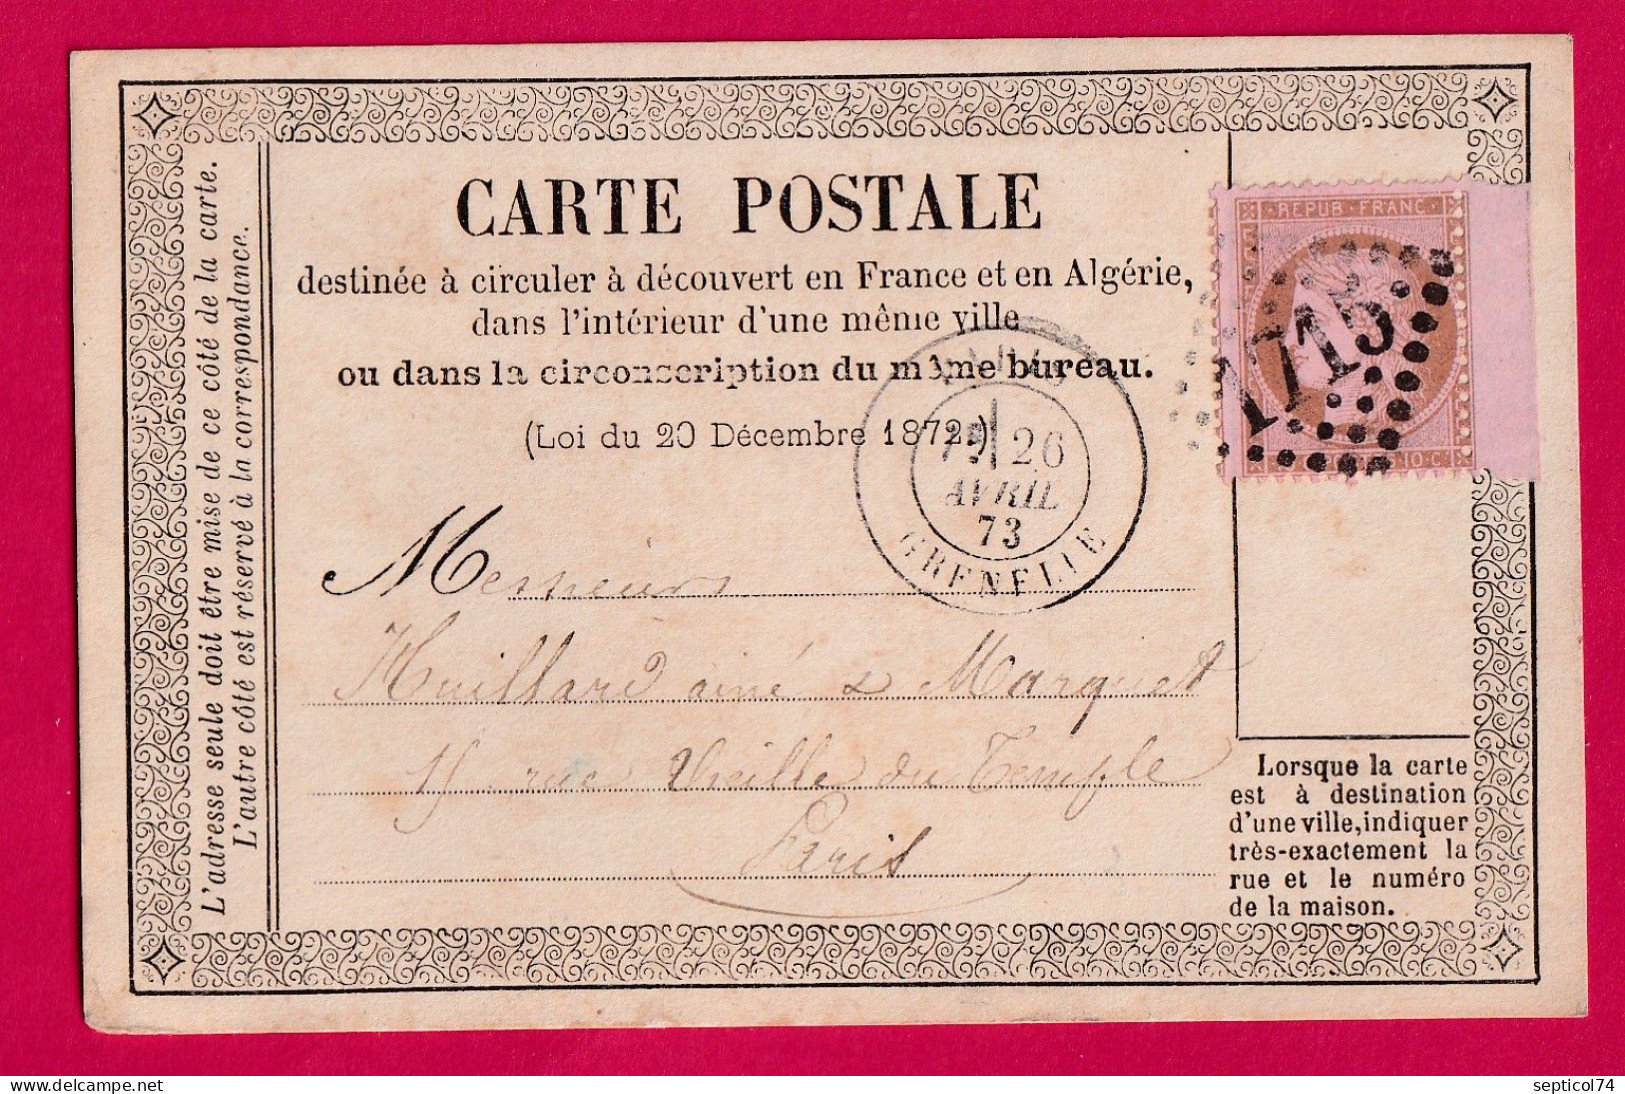 CARTE POSTALE
destinée à circuler à découvert en France et en Algérie,
dans l'intérieur d'une même ville
ou dans la circonscription du même bureau.
(Loi du 20 Décembre 1872.)
L'adresse seule doit être mise de ce côté de la carte.
L'autre côté est réservé à la correspondance.
REPUB·FRANC
10·C
1715
PARIS
26
AVRIL
73
GRENELLE
Messieurs
Huillard ainé & Marquet
rue Vieille du Temple
Paris
Lorsque la carte
est à destination
d'une ville, indiquer
très-exactement la
rue et le numéro
de la maison.
septicol74